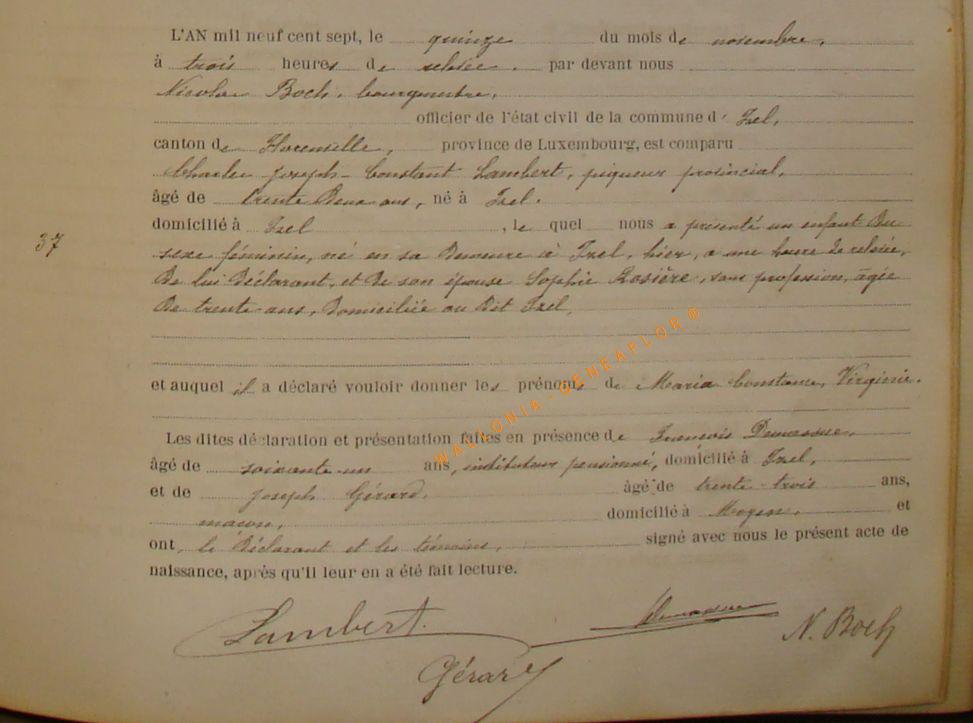 L'AN mil neuf cent sept, le quinze du mois de novembre,
à trois heures de relevée, par devant nous
Nicolas Boch, bourgmestre,
officier de l'état civil de la commune d' Izel,
canton de Florenville, province de Luxembourg, est comparu
Charles Joseph Constant Lambert, piqueur provincial,
âgé de trente deux ans, né à Izel.
domicilié à Izel, le quel nous a présenté un enfant du
37
sexe féminin, né en sa demeure à Izel, hier, à une heure de relevée,
de lui déclarant, et de son épouse Sophie Rosière, sans profession, âgée
de trente ans, domiciliée au dit Izel,
et auquel il a déclaré vouloir donner les prénoms de Maria Constance, Virginie.
Les dites déclaration et présentation faites en présence de François Demasure,
âgé de soixante-un ans, instituteur pensionné, domicilié à Izel,
et de Joseph Gérard, âgé de trente-trois ans,
maçon, domicilié à Moyen, et
ont, le déclarant et les témoins, signé avec nous le présent acte de
naissance, après qu'il leur en a été fait lecture.
Lambert.
N. Boch
Gérard
WALLONIA-GENEAFLOR®